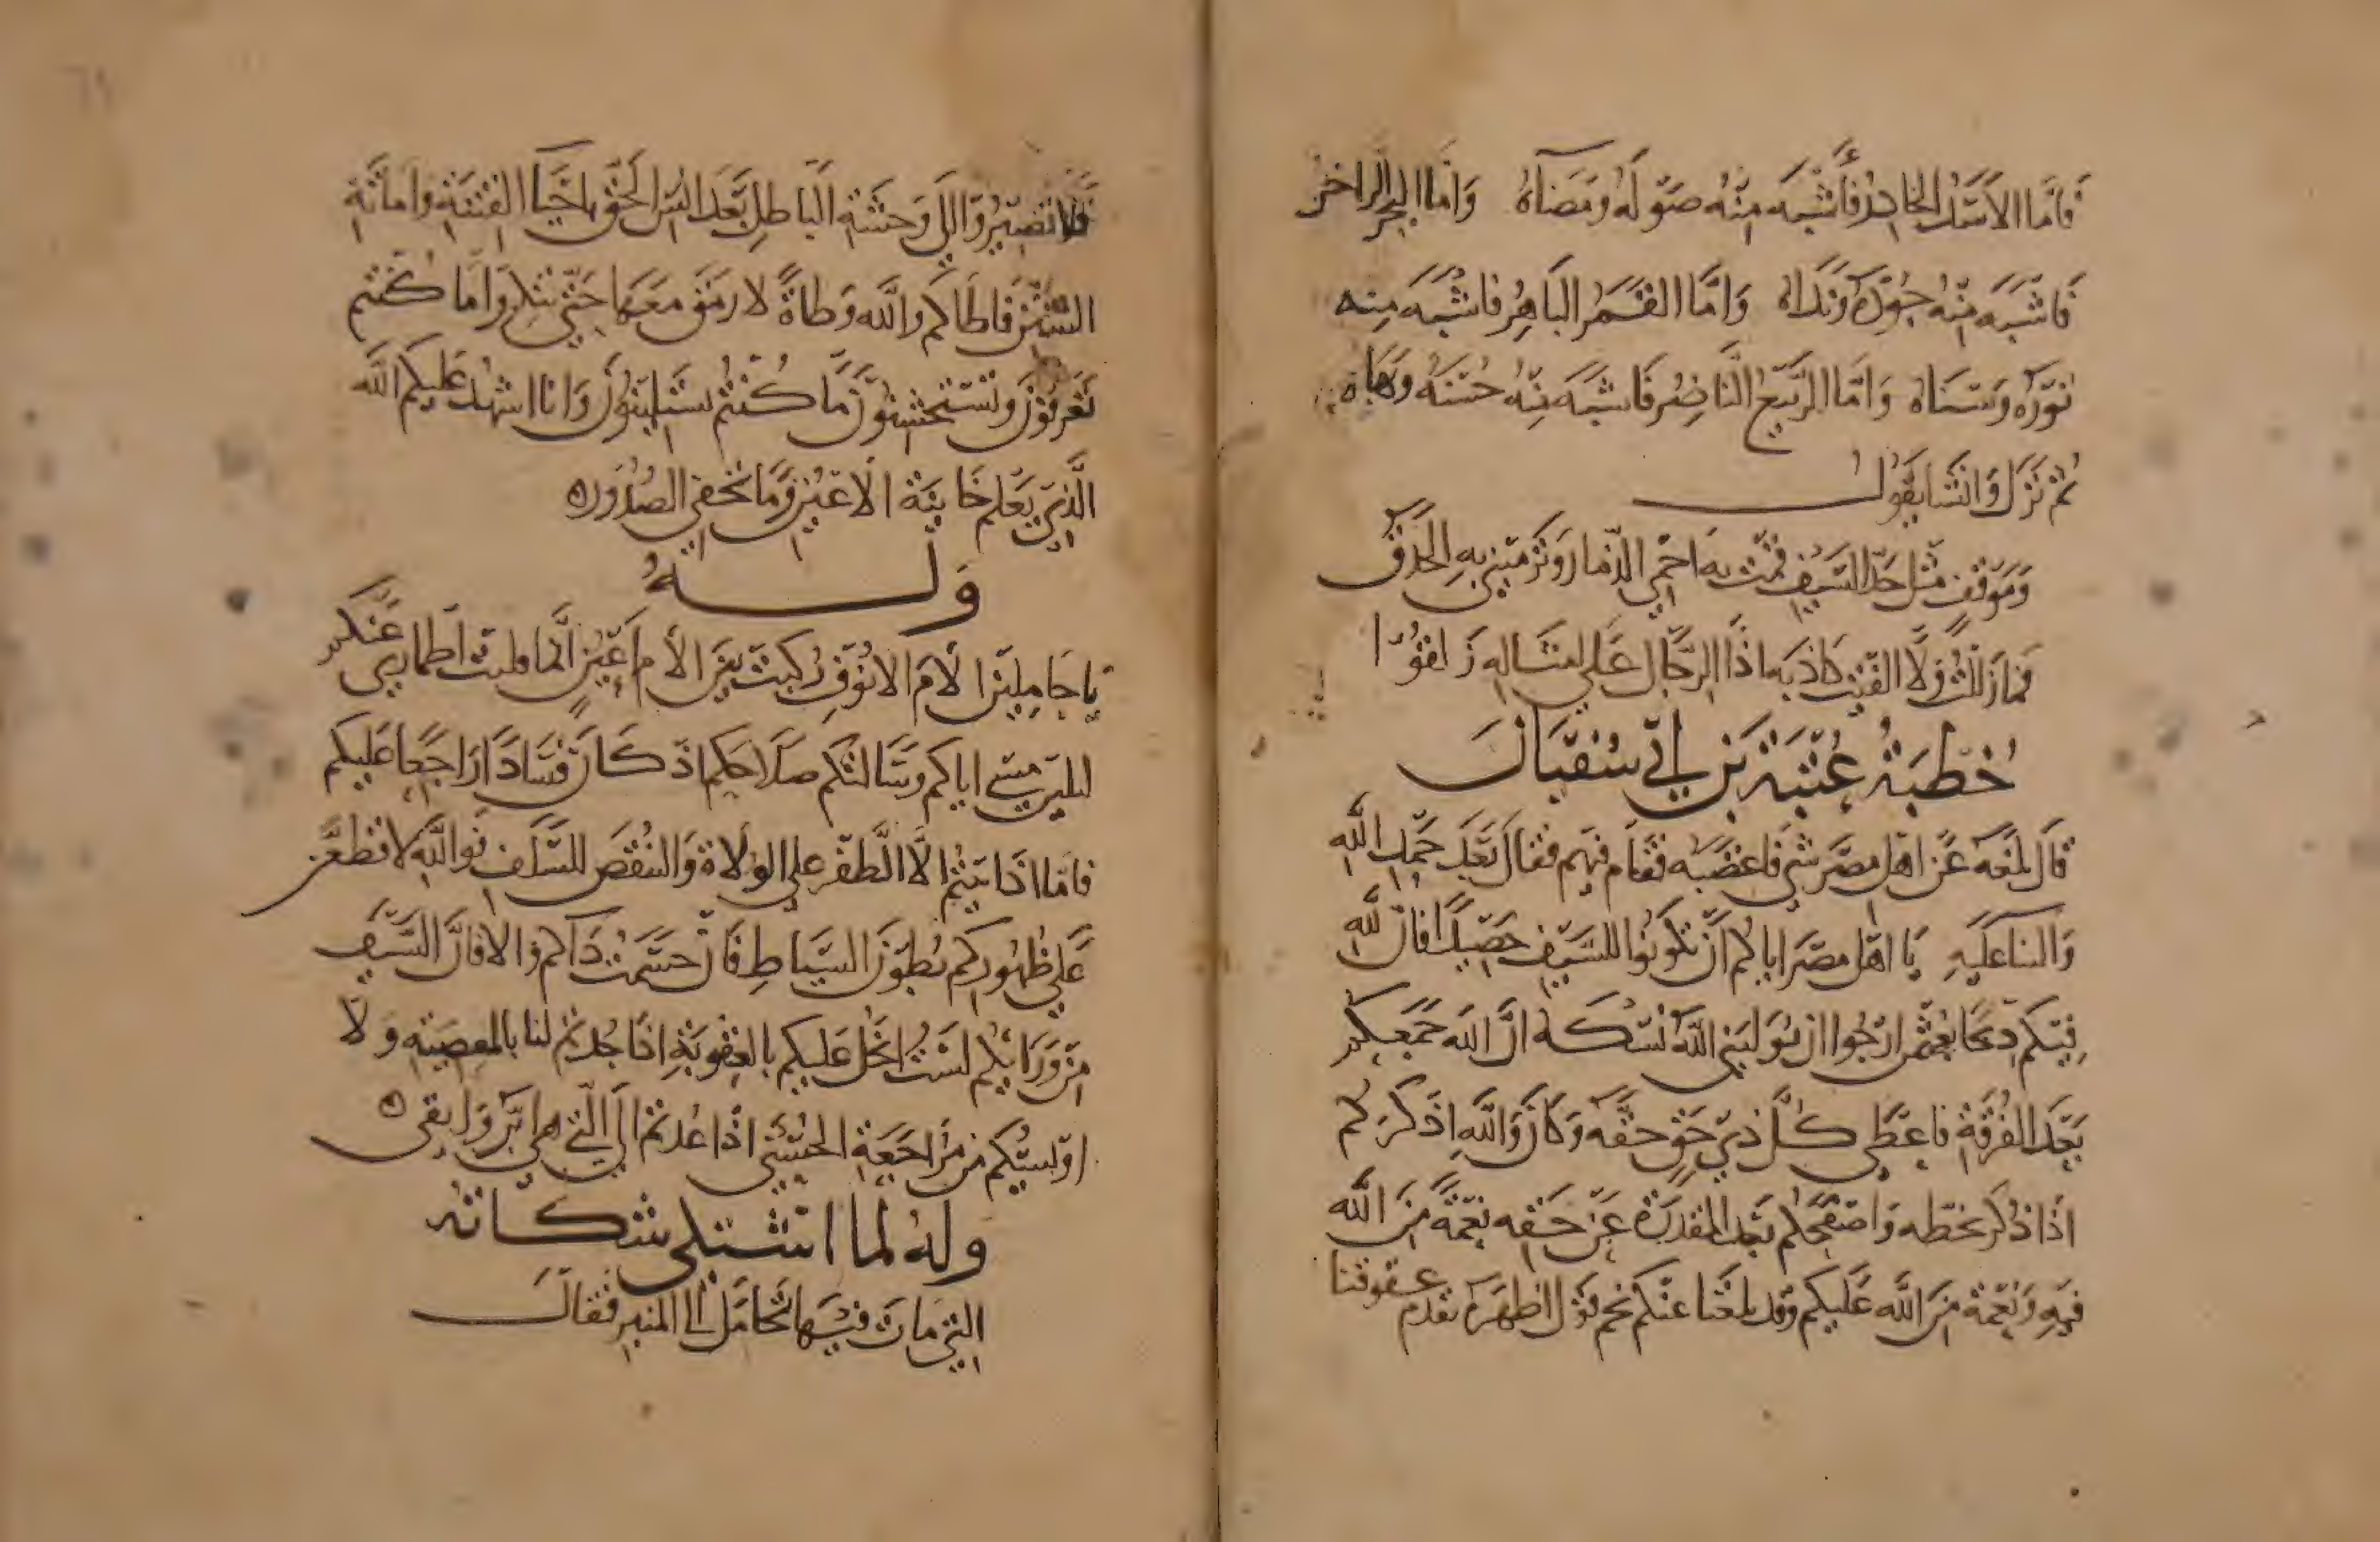 فَاَمَّا الاَسَدُ الخادِرُ فَاَشْبَهَ مِنْهُ صَوْلَهُ ومَضَاهُ وَاَمَّا البحرُ الزاخرُ
فَاَشْبَهَ مِنْهُ جُوْدَهُ وَنَدَاهُ وَاَمَّا القَمَرُ البَاهِرُ فاشْبَهَ مِنه
نُوْرَهُ وَسَنَاهُ وَاَمَّا الرَّبِيْعُ النَّاضِرُ فَاَشبَهَ مِنْهُ حُسْنَهُ وَبَهَاهُ
ثمّ نَزَلَ وَانْشَا يَقُولُ
وَمَوْقفٍ مثْلِ حَدِّ السَّيفِ قُمْتُ به اَحْمِي الذّمارَ وَتَرْمِيْنِي بِهِ الحَدَقُ
فَمَا زَلَلْتُ ولَا القَيْتُ كاذبَه اذَا الرّجَال عَلَى امثَاله زَلقُوا
خُطْبَةُ عُتْبَةَ بْنِ اَبِي سُفْيَانَ
قَالَ بلَغَه عَنْ اهْلِ مصْرَ شي فَاغضَبَه فقَامَ فيهِم فقَالَ بَعْدَ حَمْدِ اللَّهِ
وَالثنا عَلَيهِ يَا اهْلَ مصْرَ اياكُم اَنْ تَكُونُوا للسَّيْفِ حَصِيْدًا فانَّ للَّهِ
فِيْكُم ذِبْحًا بعُثمن ارْجُوا ان يُوَلّيَني اللَّهُ نُسْكَه انَّ اللَّهَ جَمَعَكُم
بَعْدَ الفُرْقَةِ فاعْطَى كُلَّ ذِي حَقٍّ حَقَّه وَكانَ وَاللَّهِ اِذْكَرَكُم
اذَا ذُكِّرَ بخطّه وَاصْفَحَكُم بَعْدَ المَقْدرَةِ عَنْ حَقّه نِعْمَةً مِنَ اللَّه
فِيهِ وَنِعْمَة مِنَ اللَّهِ عَلَيكم وَقد بلَغَنا عنْكم نَجم قَوْل اظهَرَه تَقدّم عفونا
فَلَا تَصِيْرُوْا اِلَى وَحشَةِ البَاطِلِ بَعْدَ انْسِ الحَقِّ باحْيَا الفِتْنَةِ وَاماتةِ
السُّنَنِ فاطَاكم واللَّه وَطاةً لا رمَقَ معَهَا حَتَّى تُنكِرُوا مَا كُنْتم
تَعْرِفُوْنَ وتَسْتَخْشِنُوْنَ مَا كُنْتُم تَسْتَلِيْنُوْنَ وَانا اشهِدُ عَلَيكم اللَّهَ
الَّذِي يَعْلم خَايِنَةَ الاَعْيُنِ وَمَا تُخْفِي الصُدُوْر
وَلَهُ
يا حَامِليْنَ الاَمَ الانُوْفِ رُكِّبَتْ بَيْنَ الاَمِ اَعْيُنٍ انّما قلمت اظفاري عَنكم
ليَلِيْنَ مَسّي اياكم وَسَالتكم صَلَاحَكم اذْ كَانَ فَسَادًا رَاجعًا عَليكم
فامّا اذَا بيْتُم الَّا الطّعْنَ علَى الوُلَاةِ وَالتنَقُّصَ للسَّلَفِ فَوَاللَّهِ لَاقطِّعَنَّ
عَلَى ظُهُوركم بُطُوْنَ السِّيَاطِ فَانْ حَسَمَتْ دَاكم والَّا فَانَّ السَّيْفَ
مِنْ وَرَايِكُم لسْتُ ابْخَلُ عَلَيكُم بالعُقُوبَةِ اذا جُدتم لنا بالمعصيَةِ وَلا
اوْيسُكُم مِنْ مُرَاجَعَةِ الحُسْنَى اذَا عُدتم الى الّتي هي ابَرُّ وَابقَى
وَلهُ لما اشتكى شكاتَه
التي مَاتَ فيهَا تحَامَلَ الَى المنبر فقالَ